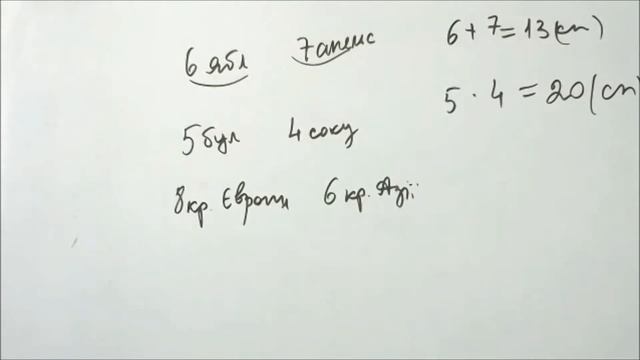 6 ябл 7 апельс
6 + 7 = 13 (сп)
5 бул 4 соку
5 · 4 = 20 (сп)
8 кр. Європи 6 кр. Азії